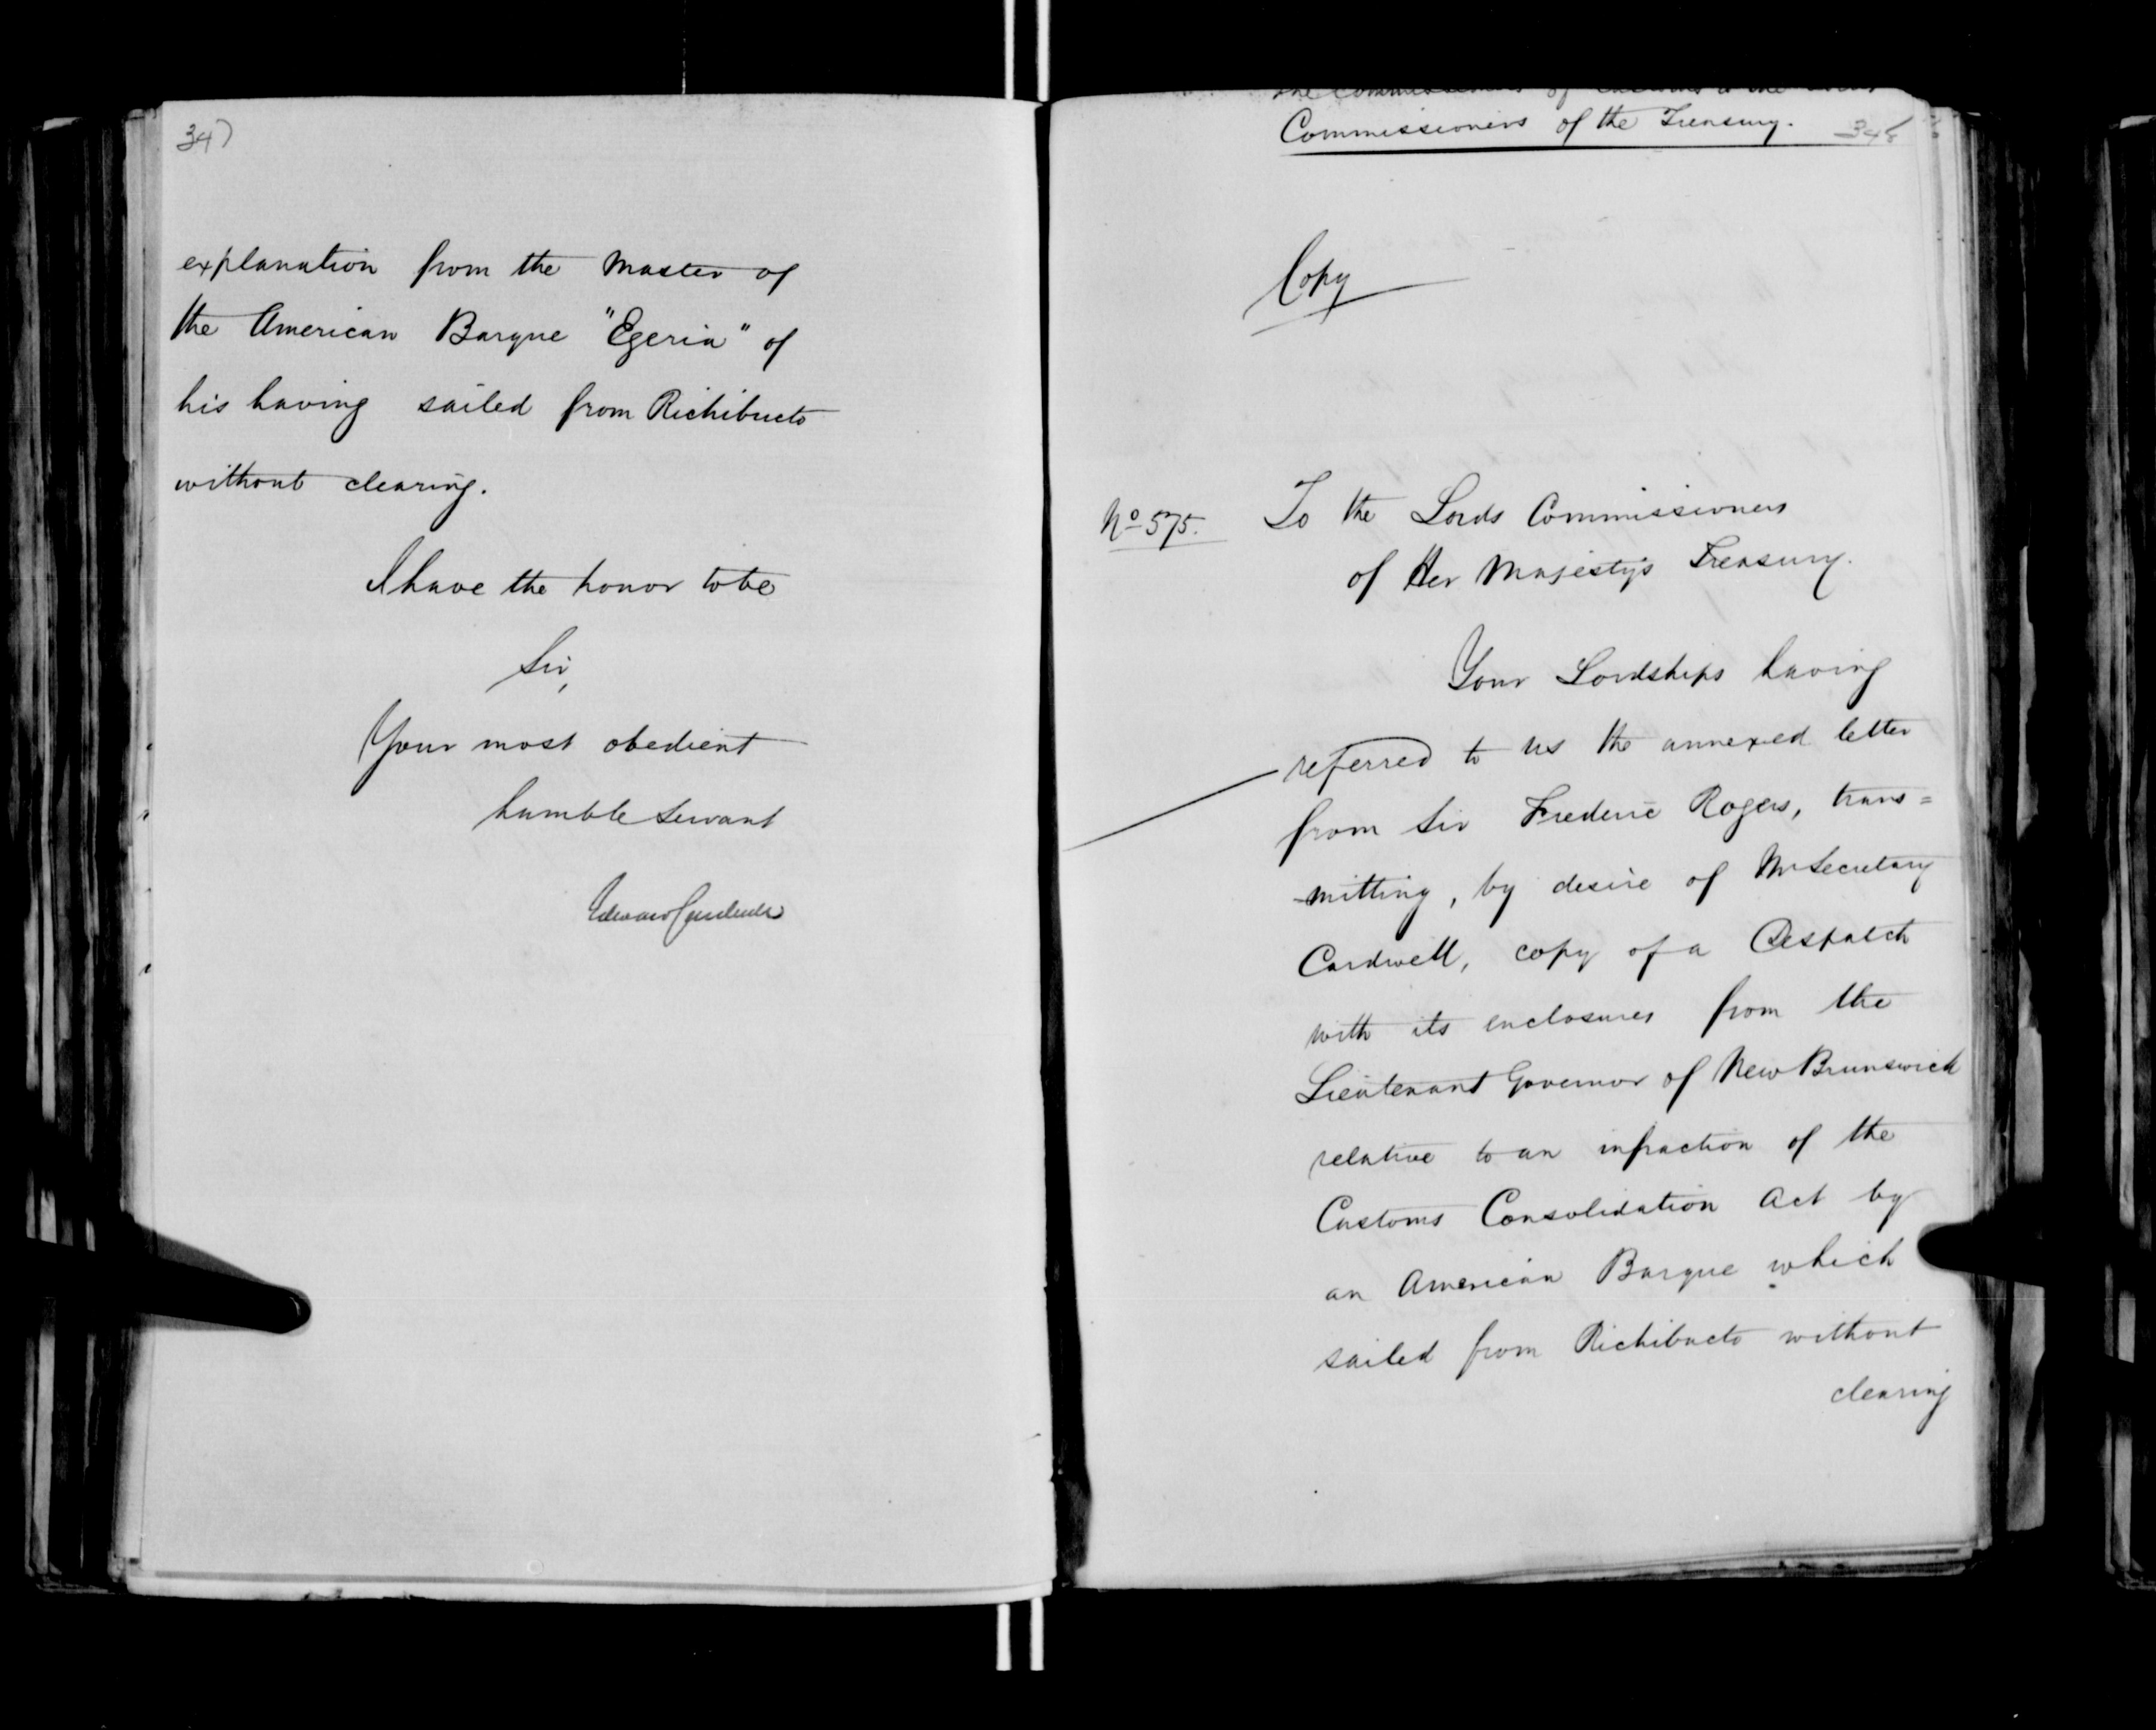 347
explanation from the Master of
the American Barque "Egeria" of
his having sailed from Richibucto
without clearing.
I have the honor to be
Sir,
Your most obedient
humble Servant
Edward Cardwell
the Commissioners of Customs to the Lords
Commissioners of the Treasury.
348
Copy
No 575.
To the Lords Commissioners
of Her Majesty's Treasury.
Your Lordships having
referred to us the annexed letter
from Sir Frederic Rogers, trans=
-mitting, by desire of Mr Secretary
Cardwell, copy of a Despatch
with its enclosures from the
Lieutenant Governor of New Brunswick
relative to an infraction of the
Customs Consolidation Act by
an American Barque which
sailed from Richibucto without
clearing